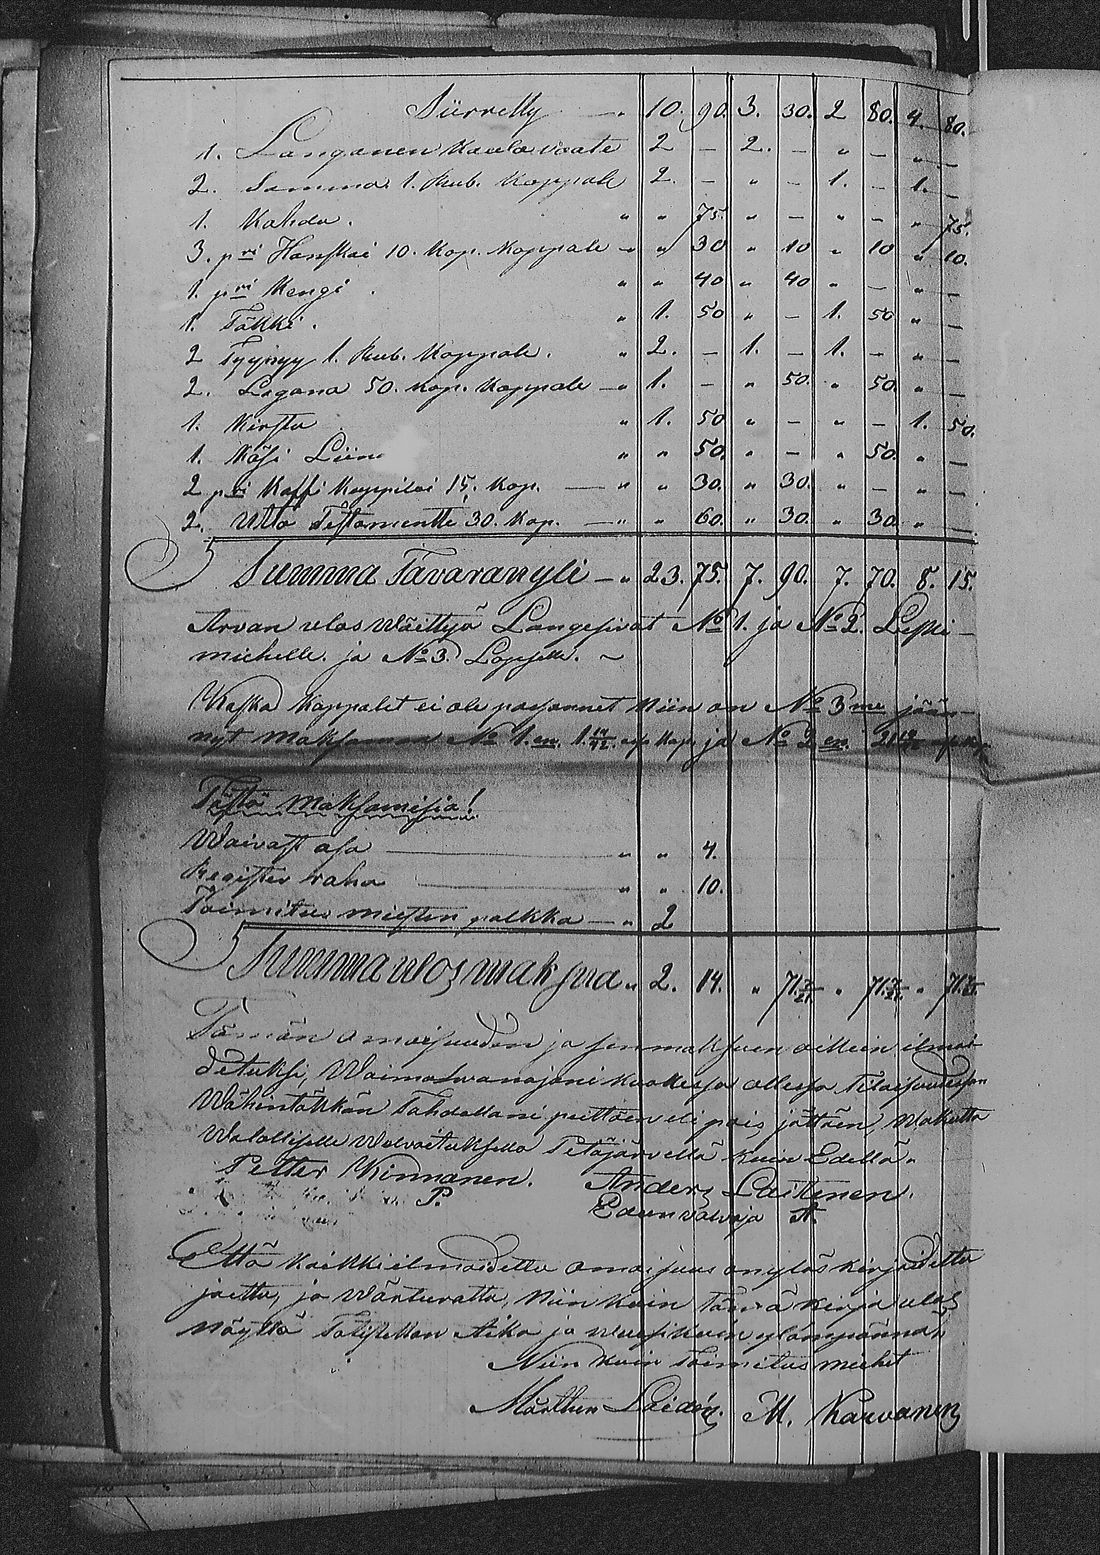 Siirretty — " 10. 90. 3. 30. 2 80. 4. 80.
1. Langanen Kaula vaate 2 – 2. – " – " –
2. Samma 1. Rub. Kappale 2. – " – 1. – 1. –
1. Kahdu. " " 75. " – " – " 75.
3. pri Hanskai 10. Kop. Kappale – " " 30 " 10 " 10 " 10.
1. pri Kengi . " " 40 " 40 " – " –
1. Täkki. " 1. 50 " – 1. 50 " –
2 Tyyjnyy 1. Rub. Kappale. " 2. – 1. – 1. – " –
2. Lagana 50. Kop. Kappale – " 1. – " 50. " 50. " –
1. Kirstu " 1. 50 " – " – 1. 50.
1. Käsi Liina " " 50. " – " 50. " –
2 pri Kaffi Kuppiloi 15. Kop. — " " 30. " 30. " – " –
2. Utta Testamentte 30. Kop. — " " 60. " 30. " 30. " –
Summa Tavaranyli – " 23. 75. 7. 90. 7. 70. 8. 15.
Arvan ulos Wäittyä Langesivat No 1. ja No 2. Leski-
miehelle. ja No 3. Lapselle. ~
Koska Kappalet ei ole passannet Niin on No 3 me jään-
nyt maksaman No 1. en 1. Kop. ja No 2 en
Tästä maksamisia!
Waivast asa — " " 4.
Register raha — " " 10.
Toimitus miesten palkka — " 2
Summa ulos maksua " 2. 14. " 71. " 71. " 71.
Tämän omaisuuden ja sen maksuen oikein ilmoi-
detuksi, Waimo wanajani kuollessa ollessa tilaisuudessan
Wähintäkkän Tahdollani peittäen eli pois jättäen, Wakutta
Walallisella Welvoituksella Petäjärvellä kuin Edellä.
Petter Kinnanen. Anders Laitenen.
P. Edunvalvoja A.
Että kaikki ilmoidettu omaisuus on ylös kirjoidettu
jaettu, ja wärderattu, Niin kuin tämä kirja ulos
näyttä Todistettan Aika ja paikka kuin ylämpännä
Niin kuin toimitus miehet
Mårthen Laidén. M. Karvanen